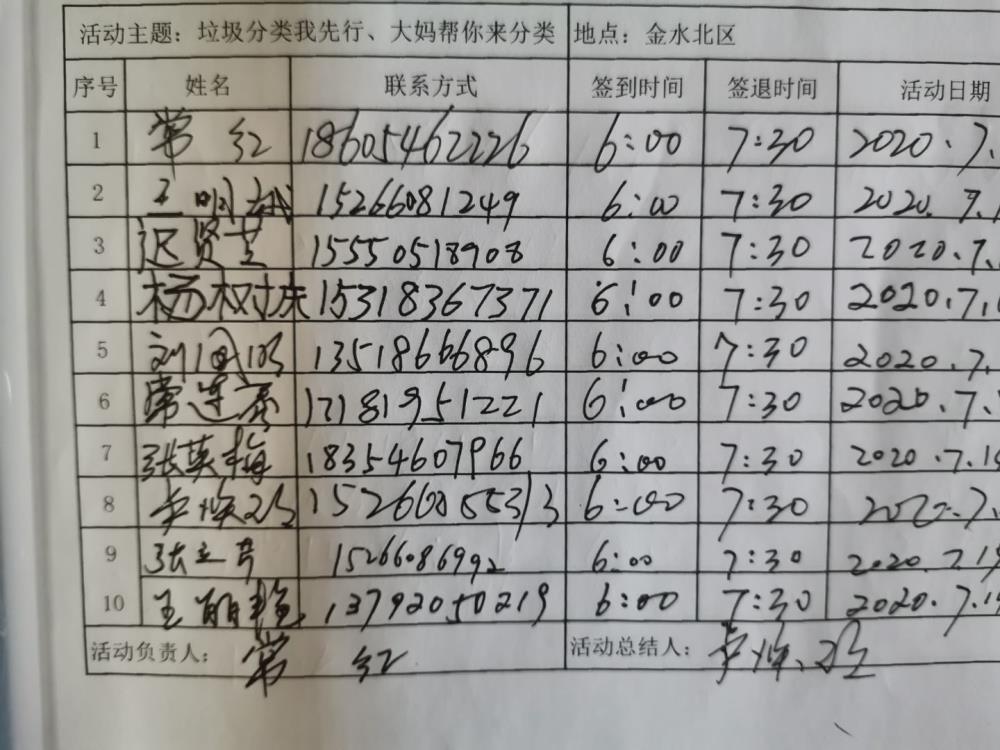 活动主题：垃圾分类我先行、大妈帮你来分类 地点：金水北区
序号 姓名 联系方式 签到时间 签退时间 活动日期
1 常红 18605462226 6:00 7:30 2020.7.
2 王明武 15266081249 6:00 7:30 2020.7.1
3 迟贤芝 15550518908 6:00 7:30 2020.7.
4 杨树林 15318367371 6:00 7:30 2020.7.1
5 13518666896 6:00 7:30 2020.7.
6 常连 17181951221 6:00 7:30 2020.7.
7 张英梅 18354607966 6:00 7:30 2020.7.1
8 6:00 7:30 2020.7.
9 张立芹 15266086992 6:00 7:30 2020.7.1
10 王丽艳 13792050219 6:00 7:30 2020.7.1
活动负责人：常红 活动总结人：